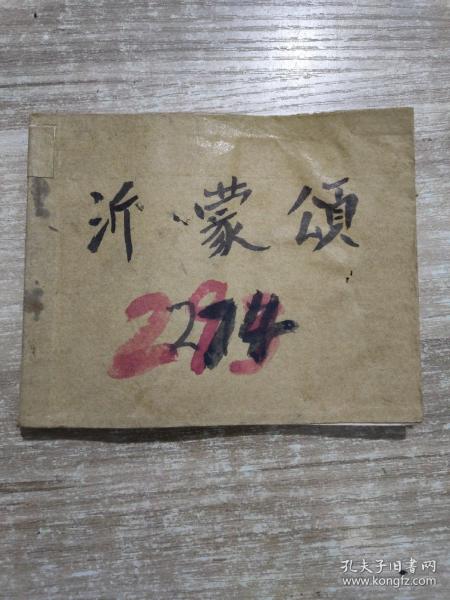 沂蒙頌
274
孔夫子旧书网
www.kongfz.com